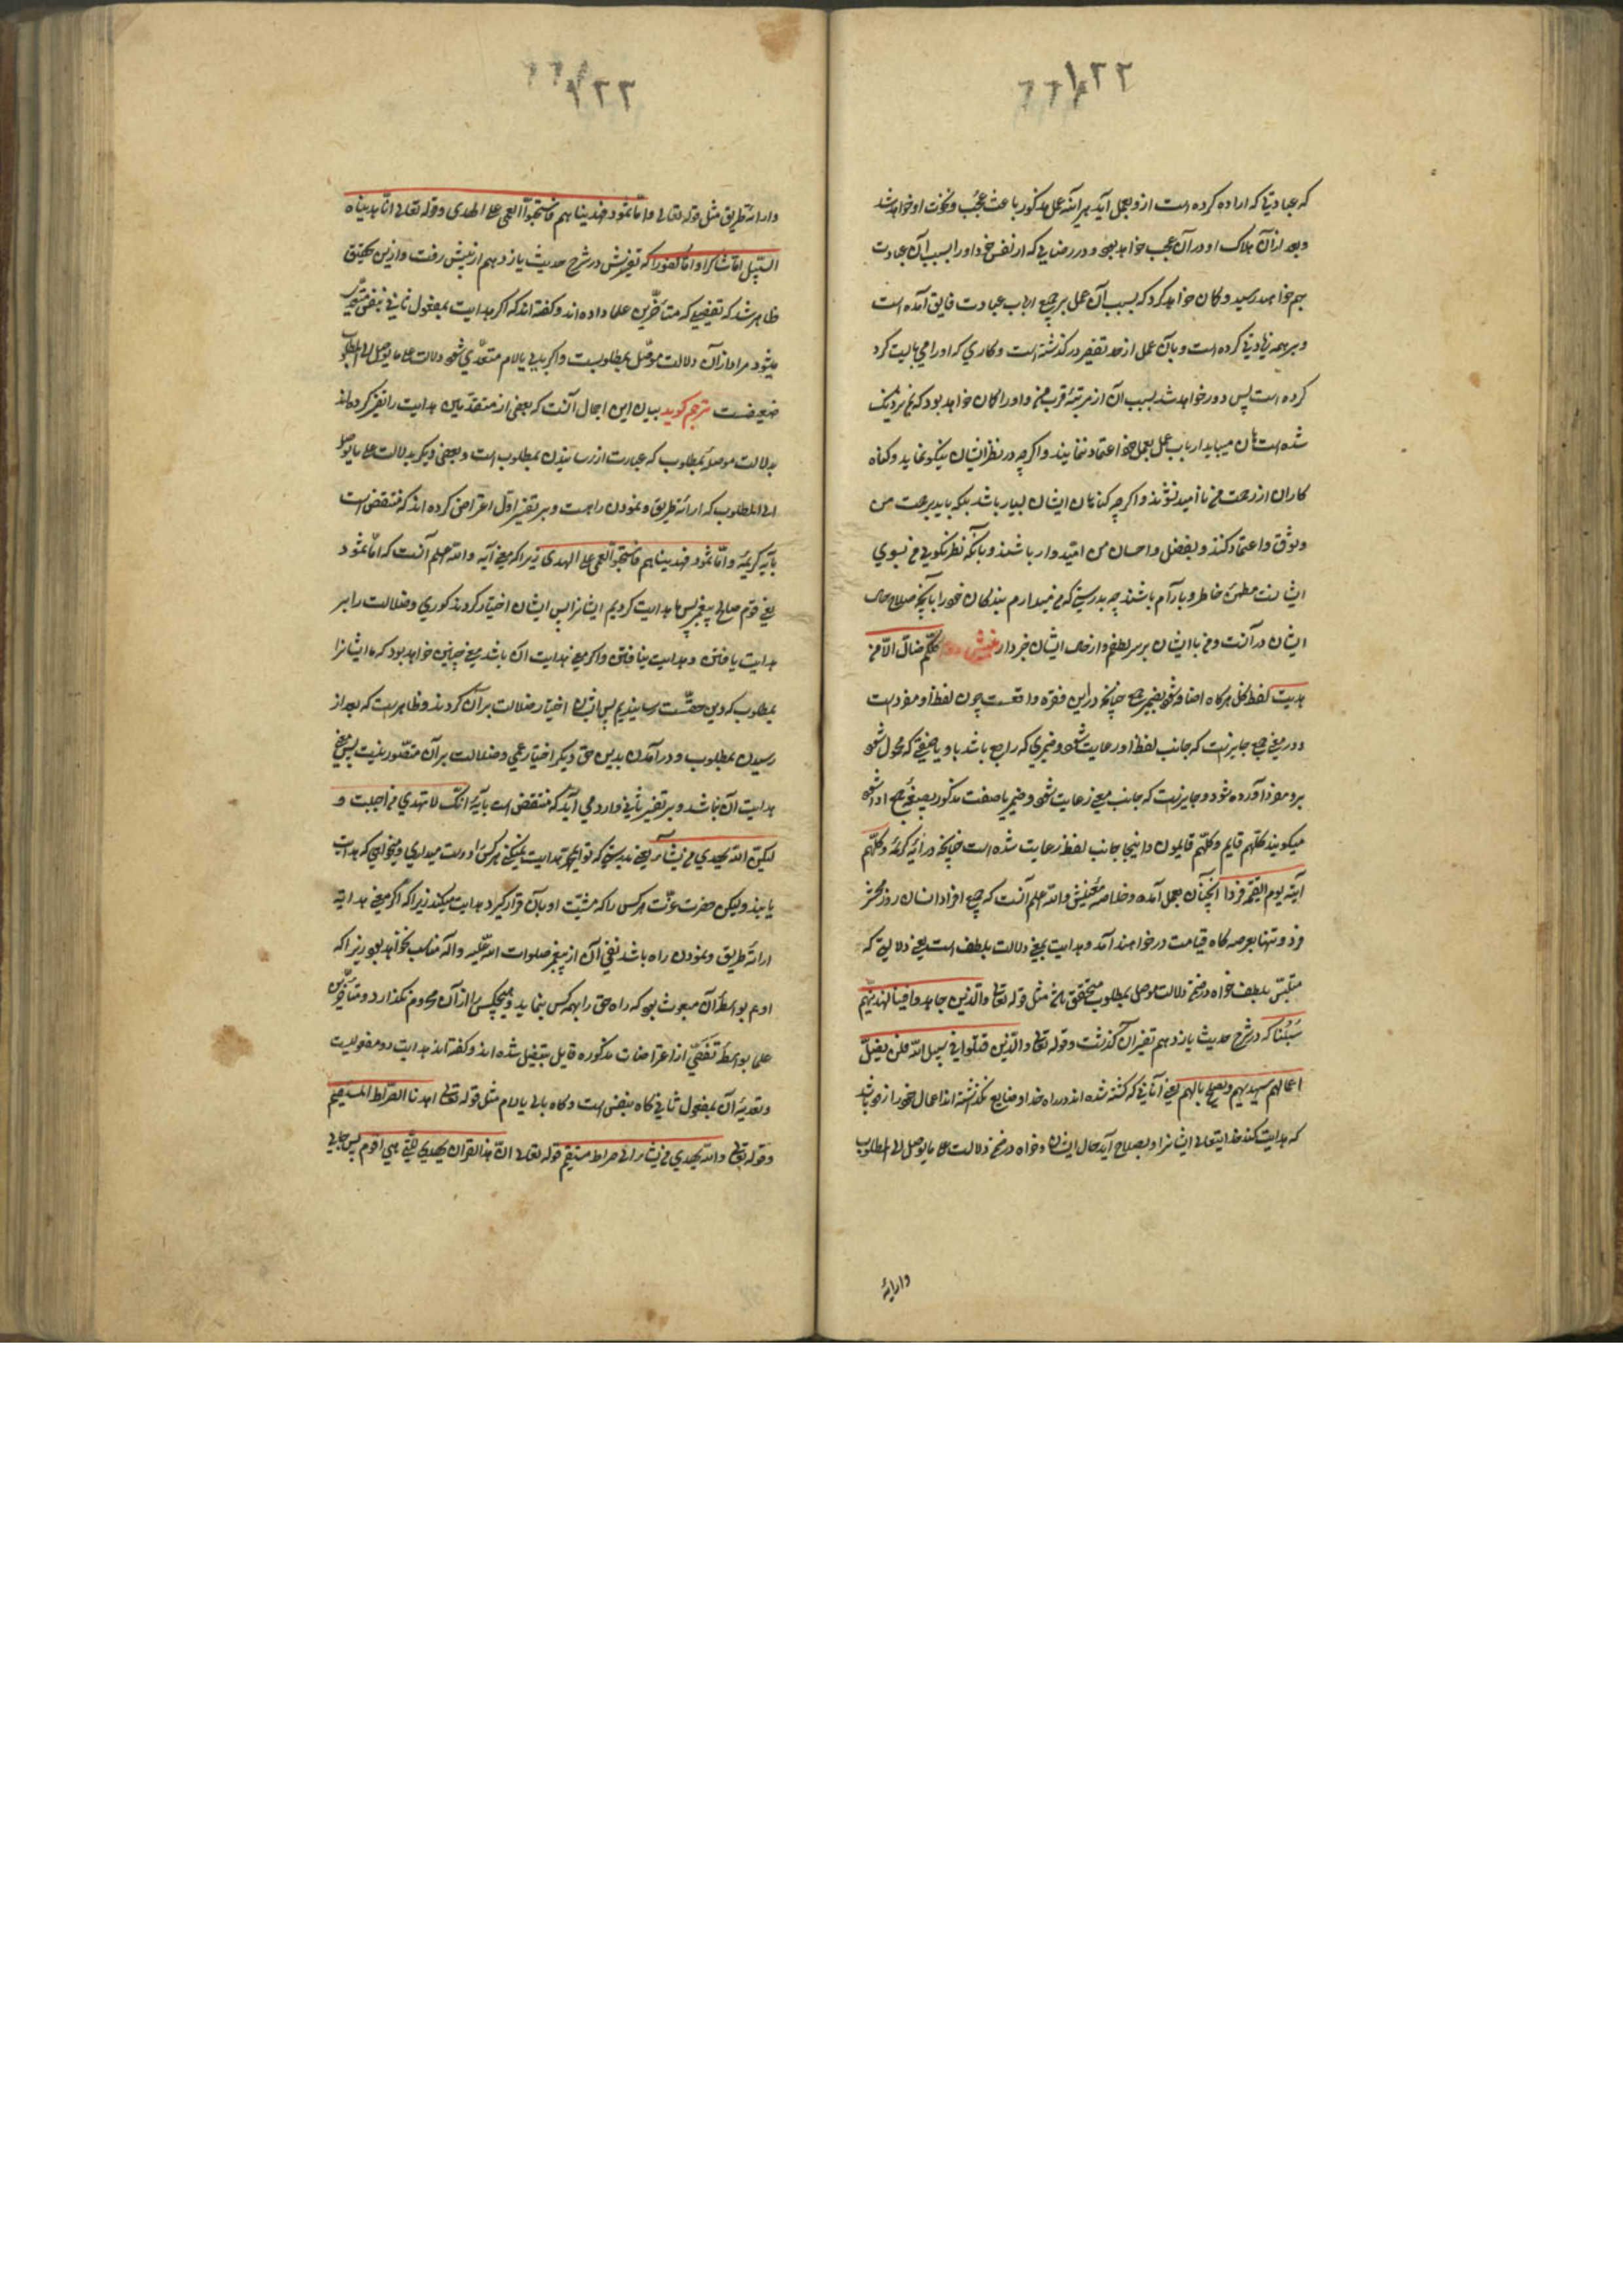 ۱۲۲
که عبادتی که اراده کرده است ازو بعمل آید هر آینه عمل مذکور باعث عجب و نخوت او خواهد شد
و بعد از آن هلاک او در آن عجب خواهد بود و در رضایی که از نفس خود او را بسبب آن عبادت
بهم خواهد رسید و کمان خواهد کرد که بسبب آن عمل بر جمیع ارباب عبادت فایق آمده است
و بر همه زیادتی کرده است و بآن عمل از حد تقصیر در کذشته است و کاری که او را می بایست کرد
کرده است پس دور خواهد شد بسبب آن از مرتبهٔ قرب من و او را کمان خواهد بود که بمن نزدیک
شده است هان میباید ارباب عمل بعمل خود اعتماد ننمایند و اکرچه در نظر ایشان نیکو نماید و کناه
کاران از رحمت من ناامید نشوند و اکرچه کناهان ایشان بسیار باشد بلکه باید برحمت من
وثوق و اعتماد کنند و بفضل و احسان من امیدوار باشند و بآنکه نظر نکویی من بسوی
ایشانست مطمئن خاطر و بآرام باشند چه بدرستی که من میدارم بندکان خود را بآنچه صلاح حال
ایشان در آنست و من با ایشان بر سر لطفم و از حال ایشان خبردار کلکم ضالّ الّا من
هدیت لفظ کل هرکاه اضافه شود بضمیر جمع چنانچه دراین فقره واقعست چون لفظ او مفرد است
و در معنی جمع جایز است که جانب لفظ او رعایت شود و ضمیری که راجع باشد باو یا صفتی که محمول شود
برو مفرد آورده شود و جایز است که جانب معنی رعایت شود و ضمیر یا صفت مذکور بصیغهٔ جمع ادا شود
میکویند کلّهم قایم و کلّهم قایمون و اینجا جانب لفظ رعایت شده است چنانچه در آیهٔ کریمهٔ و کلّهم
آتیه یوم القیمة فردا آنچنان بعمل آمده و خلاصهٔ معنیش والله اعلم آنست که جمیع افراد انسان روز محشر
فرد و تنها بعرصه کاه قیامت در خواهند آمد و هدایت بمعنی دلالت بلطف است یعنی دلالتی که
متلبّس بلطف خواه در ضمن دلالت موصل بمطلوب متحقق باشد مثل قوله تعالی والّذین جاهدوا فینا لنهدینّهم
سُبُلنا که در شرح حدیث یازدهم تفسیر آن کذشت و قوله تعالی والّذین قتلوا فی سبیل الله فلن یضلّ
اعمالهم سیهدیهم و یصلح بالهم یعنی آنانی که کشته شده اند در راه خدا و ضایع نکذاشته اند اعمال خود را زود باشد
که هدایت کند خدایتعالی ایشانرا و بصلاح آید حال ایشان و خواه در ضمن دلالت علی ما یوصل الی المطلوب
و ارائهٔ
۱۲۲
و ارائهٔ طریق مثل قوله تعالی و امّا ثمود فهدیناهم فاستحبّوا العمی علی الهدی و قوله تعالی انّا هدیناه
السّبیل امّا شاکرا و امّا کفورا که تفسیرش در شرح حدیث یازدهم از پیش رفت و ازین تحقیق
ظاهر شد که تفصیلی که متأخّرین علما داده اند و کفته اند که اکر هدایت بمفعول ثانی بنفس متعدّی
میشود مراد از آن دلالت موصل بمطلوبست و اکر بالی یا لام متعدّی شود دلالت علی ما یوصل الی المطلوب
ضعیفست مترجم کوید بیان این اجمال آنست که بعضی از متقدّمین هدایت را تفسیر کرده اند
بدلالت موصله بمطلوب که عبارت از رسانیدن بمطلوب است و بعضی دیکر بدلالت علی ما یوصل
الی المطلوب که ارائهٔ طریق و نمودن راهست و بر تفسیر اوّل اعتراض کرده اند که منتقض است
بآیهٔ کریمهٔ و امّا ثمود فهدیناهم فاستحبّوا العمی علی الهدی زیرا که معنی آیه والله اعلم آنست که امّا ثمود
یعنی قوم صالح پیغمبر پس ما هدایت کردیم ایشانرا پس ایشان اختیار کردند کوری و ضلالت را بر
هدایت یافتن و هدایت نیافتن و اکر معنی هدایت آن باشد معنی چنین خواهد بود که ما ایشانرا
بمطلوب که دین حقّست رسانیدیم پس ایشان اختیار ضلالت بر آن کردند و ظاهر است که بعد از
رسیدن بمطلوب و در آمدن بدین حق دیکر اختیار عمی و ضلالت بر آن متصوّر نیست پس معنی
هدایت آن نباشد و بر تفسیر ثانی وارد می آید که منتقض است بآیهٔ انّک لا تهدی من احببت و
لکنّ الله یهدی من یشاء یعنی بدرستی که تو ای محمد هدایت نمیکنی هرکس را دوست میداری و میخواهی که هدایت
یابند ولیکن حضرت عزّت هرکس را که مشیّت او بآن قرار کیرد هدایت میکند زیرا که اکر معنی هدایة
ارائهٔ طریق و نمودن راه باشد نفی آن از پیغمبر صلوات الله علیه و آله مناسب نخواهد بود زیرا که
او هم بواسطهٔ آن مبعوث بود که راه حق را بهمه کس بنماید و هیچکس را از آن محروم نکذارد و متأخّرین
علما بواسطهٔ تفصّی از اعتراضات مذکوره قایل بتفصیل شده اند و کفته اند هدایت دو مفعولیست
و تعدیهٔ آن بمفعول ثانی کاه بنفس است و کاه بالی یا لام مثل قوله تعالی اهدنا الصّراط المستقیم
و قوله تعالی والله یهدی من یشاء الی صراط مستقیم قوله تعالی انّ هذا القرآن یهدی للّتی هی اقوم پس جایی